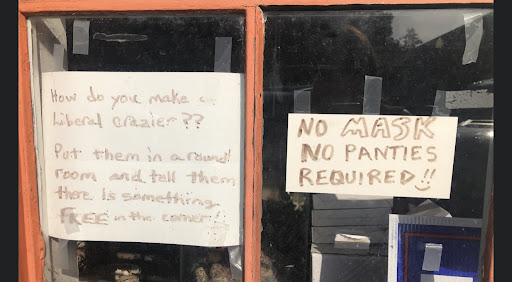 How do you make a
Liberal crazier??
Put them in a round
room and tell them
there is something
FREE in the corner!!
NO MASK
NO PANTIES
REQUIRED!!